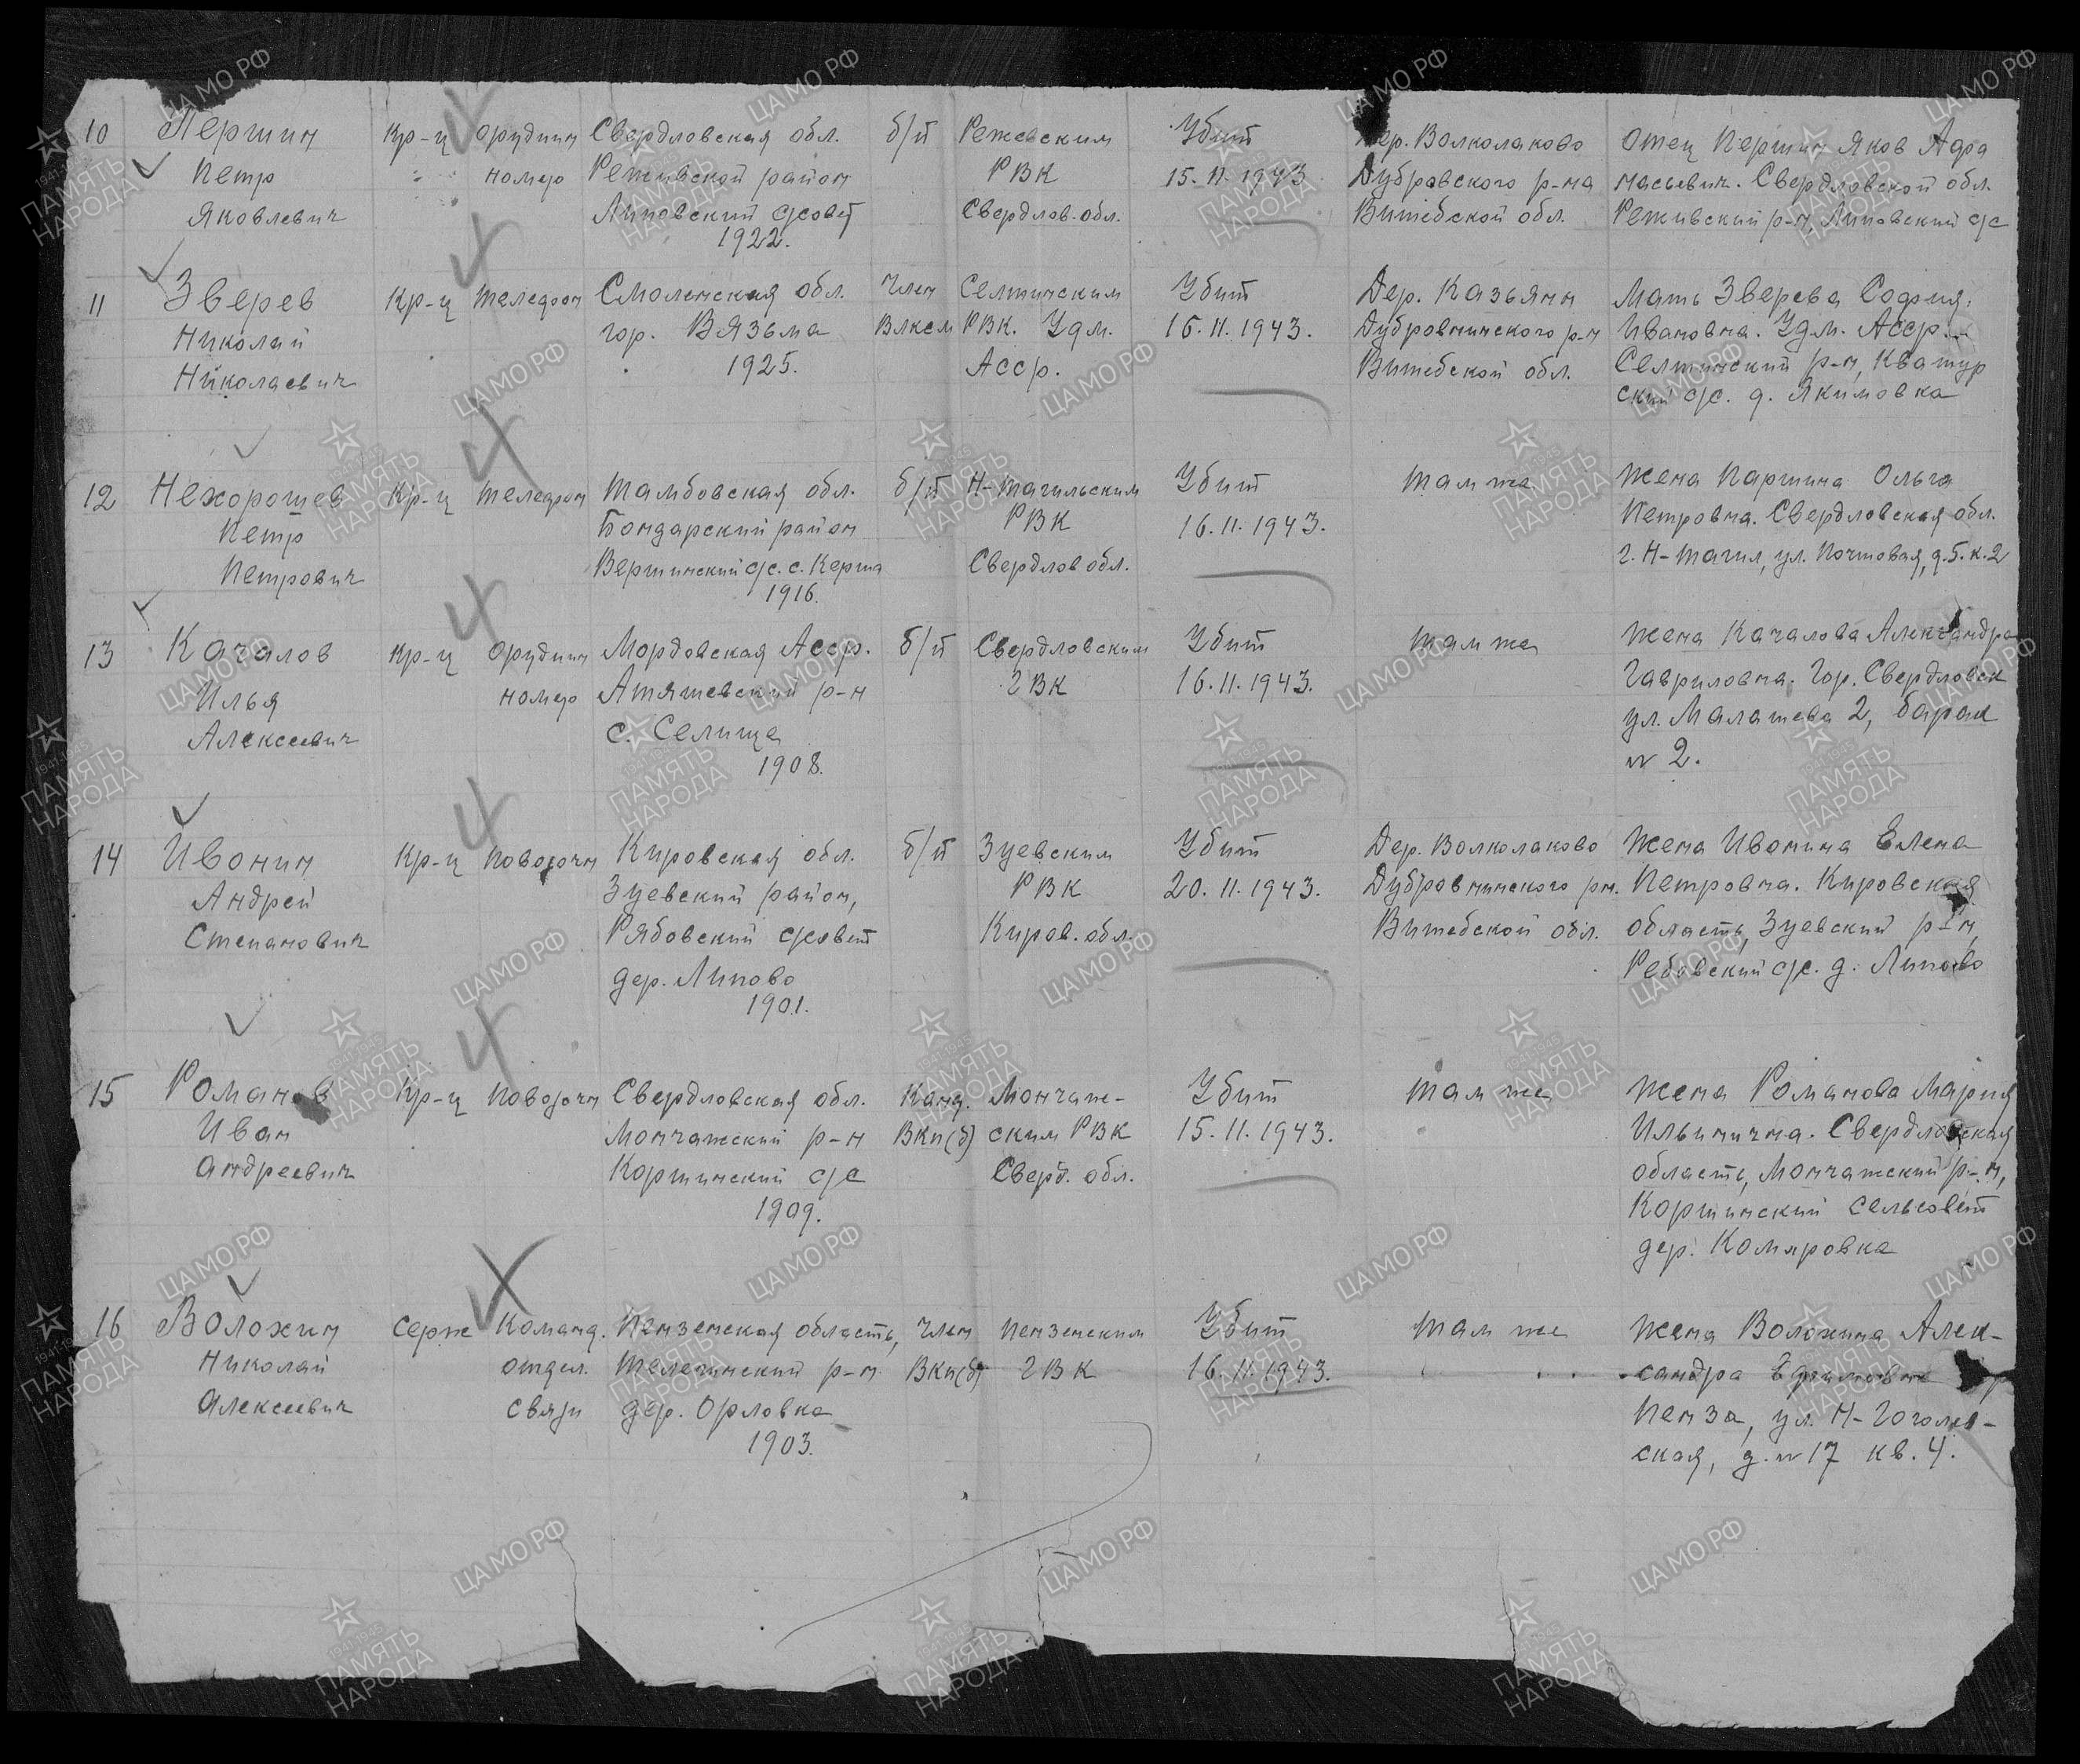 10 Першин Кр-ц орудийн Свердловская обл. б/п Режевским Убит дер. Волколаково отец Першин Яков Афа
Петр номер Реживской район РВК 15.11.1943 Дубровского р-на насьевич. Свердловской обл.
Яковлевич Липовский с/совет Свердлов. обл. Витебской обл. Реживский р-н, Липовский с/с
1922.
11 Зверев Кр-ц телефон Смоленская обл. член Селтинским Убит Дер. Казьяни Мать Зверева София
Николай гор. Вязьма Влксм РВК. Удм. 16.11.1943. Дубровнинского р-н Ивановна. Удм. Асср.
Николаевич 1925. Асср. Витебской обл. Селтинский р-н, Кватур
ский с/с. д. Якимовка
12 Нехорошев Кр-ц телефон Тамбовская обл. б/п Н-Тагильским Убит там же Жена Паршина Ольга
Петр Бондарский район РВК 16.11.1943. Петровна. Свердловская обл.
Петрович Вершинский с/с. с. Керша Свердлов обл. г. Н-Тагил, ул. Почтовая, д.5. к.2
1916.
13 Качалов Кр-ц орудийн Мордовская Асср. б/п Свердловским Убит там же Жена Качалова Александра
Илья номер Атяшевский р-н ГВК 16.11.1943. Гавриловна. Гор. Свердловск
Алексеевич с. Селище ул. Малашева 2, барак
1908. № 2.
14 Ивонин Кр-ц повозочн Кировская обл. б/п Зуевским Убит Дер. Волколаково Жена Ивонина Елена
Андрей Зуевский район, РВК 20.11.1943. Дубровнинского рн. Петровна. Кировская
Степанович Рябовский с/совет Киров. обл. Витебской обл. область, Зуевский р-н,
дер. Липово Ребовский с/с. д. Липово
1901.
15 Романов Кр-ц повозочн Свердловская обл. Канд. Мончаж- Убит там же Жена Романова Мария
Иван Мончажский р-н ВКп(б) ским РВК 15.11.1943. Ильинична. Свердловская
Андреевич Коршинский с/с Сверд. обл. область, Мончажский р-н,
1909. Коршинский сельсовет
дер. Комаровка
16 Волохин Серж Команд. Пензенская область, член Пензенским Убит там же Жена Волохина Алек-
Николай отдел. Телегинский р-н ВКп(б) ГВК 16.11.1943. сандра Ефимовна
Алексеевич связи дер. Орловка Пенза, ул. Н-Гоголев-
1903. ская, д. № 17 кв. 4.
ЦАМО РФ
1941-1945
ПАМЯТЬ
НАРОДА